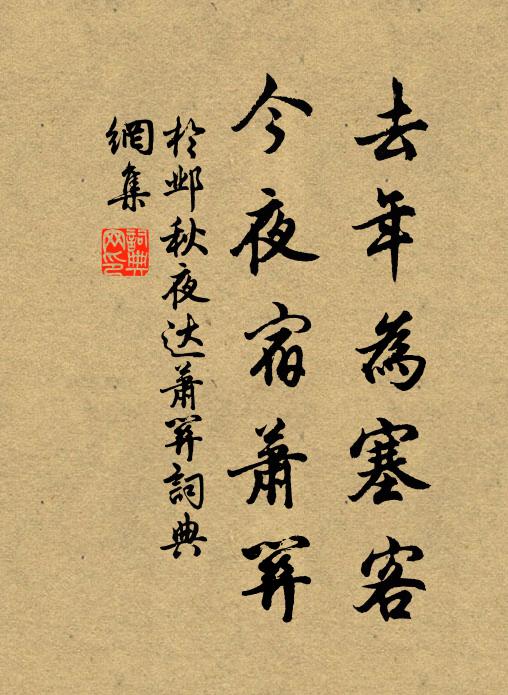 去年為塞客
今夜宿蕭關
於邺秋夜达蕭關詞典
網集
詞典網印